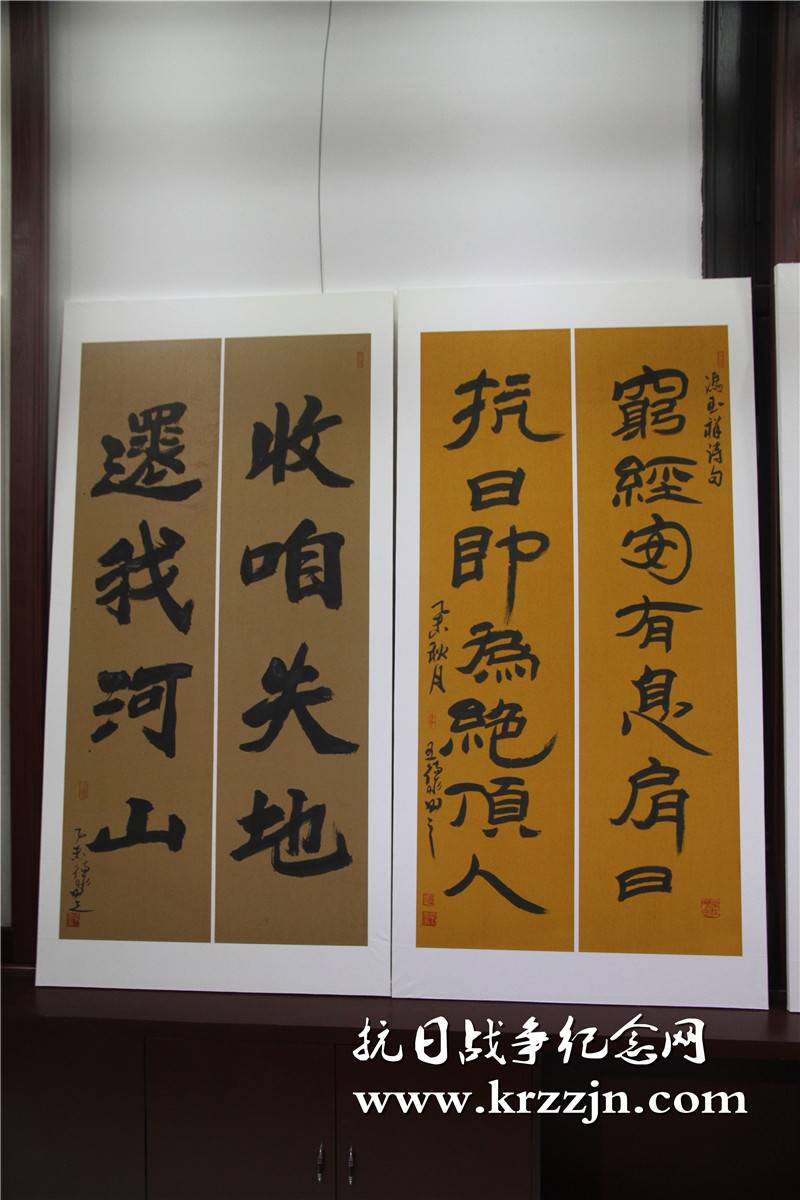 冯玉祥诗句
窮經安有息肩日
抗日即為絶頂人
乙未秋月
收咱失地
還我河山
乙未
抗日战争纪念网
www.krzzjn.com